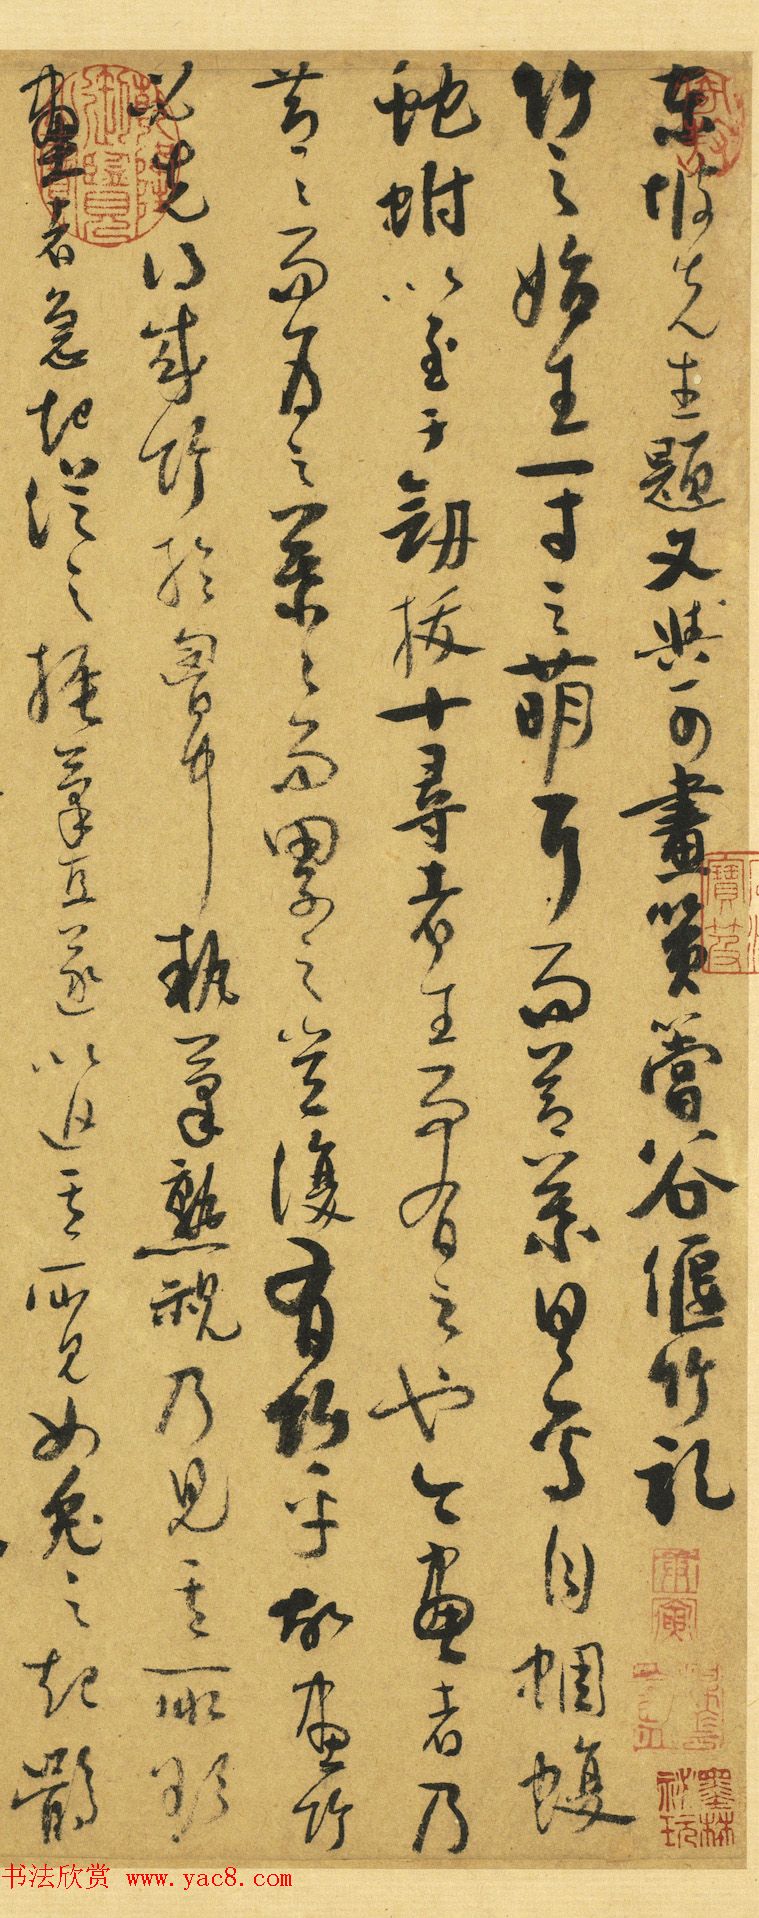 東坡先生題文與可畫篔簹谷偃竹記
竹之始生一寸之萌耳而節葉具焉自蜩蝮
蛇蚹以至于劒拔十尋者生而有之也今畫者乃
節々而爲之葉々而累之豈復有竹乎故畫竹
必先得成竹於胷中執筆熟視乃見其所欲
畫者急起從之振筆直遂以追其所見如兔之起鶻
墨林秘玩
书法欣赏 www.yac8.com